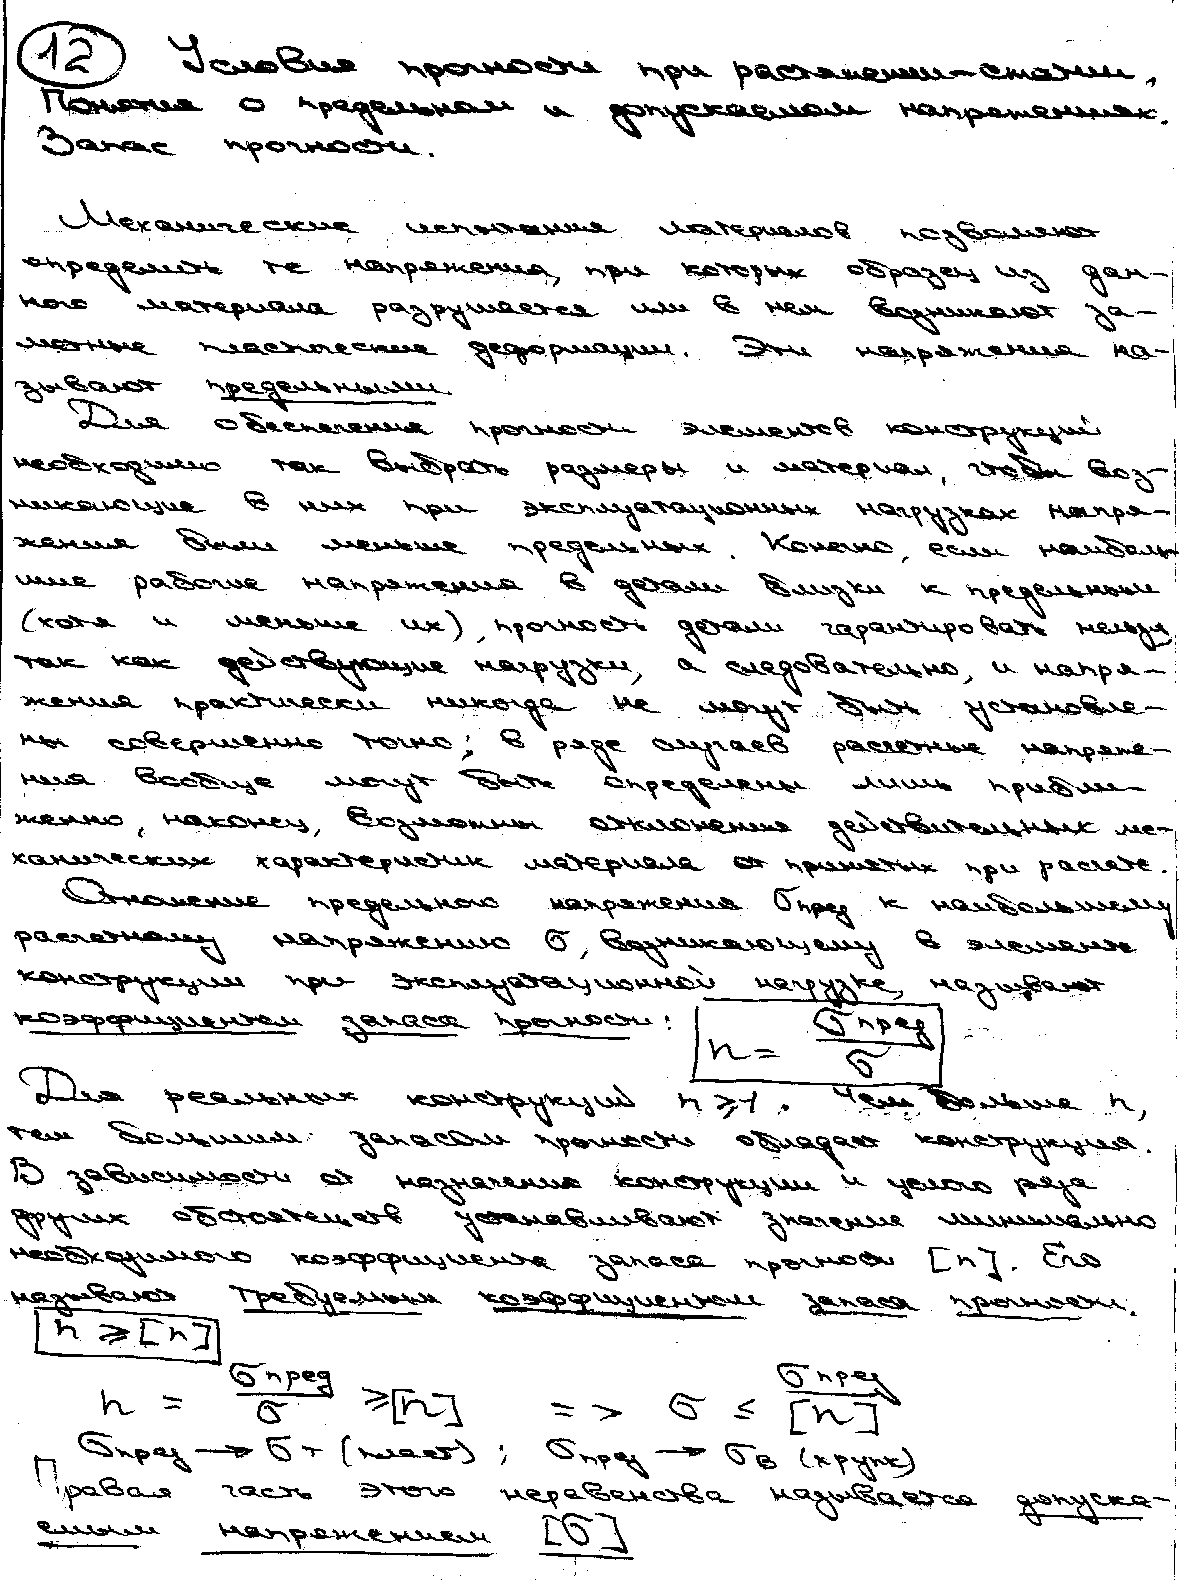 12 Условия прочности при растяжении-сжатии,
Понятия о предельном и допускаемом напряжениях.
Запас прочности.
Механические испытания материалов позволяют
определить те напряжения, при которых образец из дан-
ного материала разрушается или в нем возникают за-
метные пластические деформации. Эти напряжения на-
зывают предельными.
Для обеспечения прочности элементов конструкций
необходимо так выбрать размеры и материал, чтобы воз-
никающие в них при эксплуатационных нагрузках напря-
жения были меньше предельных. Конечно, если наиболь-
шие рабочие напряжения в детали близки к предельным
(хотя и меньше их), прочность детали гарантировать нельзя,
так как действующие нагрузки, а следовательно, и напря-
жения практически никогда не могут быть установле-
ны совершенно точно; в ряде случаев расчетные напряже-
ния вообще могут быть определены лишь прибли-
женно, наконец, возможны отклонения действительных ме-
ханических характеристик материала от принятых при расчете.
Отношение предельного напряжения σпред к наибольшему
расчетному напряжению σ, возникающему в элементе
конструкции при эксплуатационной нагрузке, называют
коэффициентом запаса прочности: n = σпред / σ
Для реальных конструкций n ≥ 1. Чем больше n,
тем большим запасом прочности обладает конструкция.
В зависимости от назначения конструкции и целого ряда
других обстоятельств устанавливают значение минимально
необходимого коэффициента запаса прочности [n]. Его
называют требуемым коэффициентом запаса прочности.
n ≥ [n]
n = σпред / σ ≥ [n] => σ ≤ σпред / [n]
σпред → σт (пласт) ; σпред → σв (хрупк)
Правая часть этого неравенства называется допуска-
емым напряжением [σ]